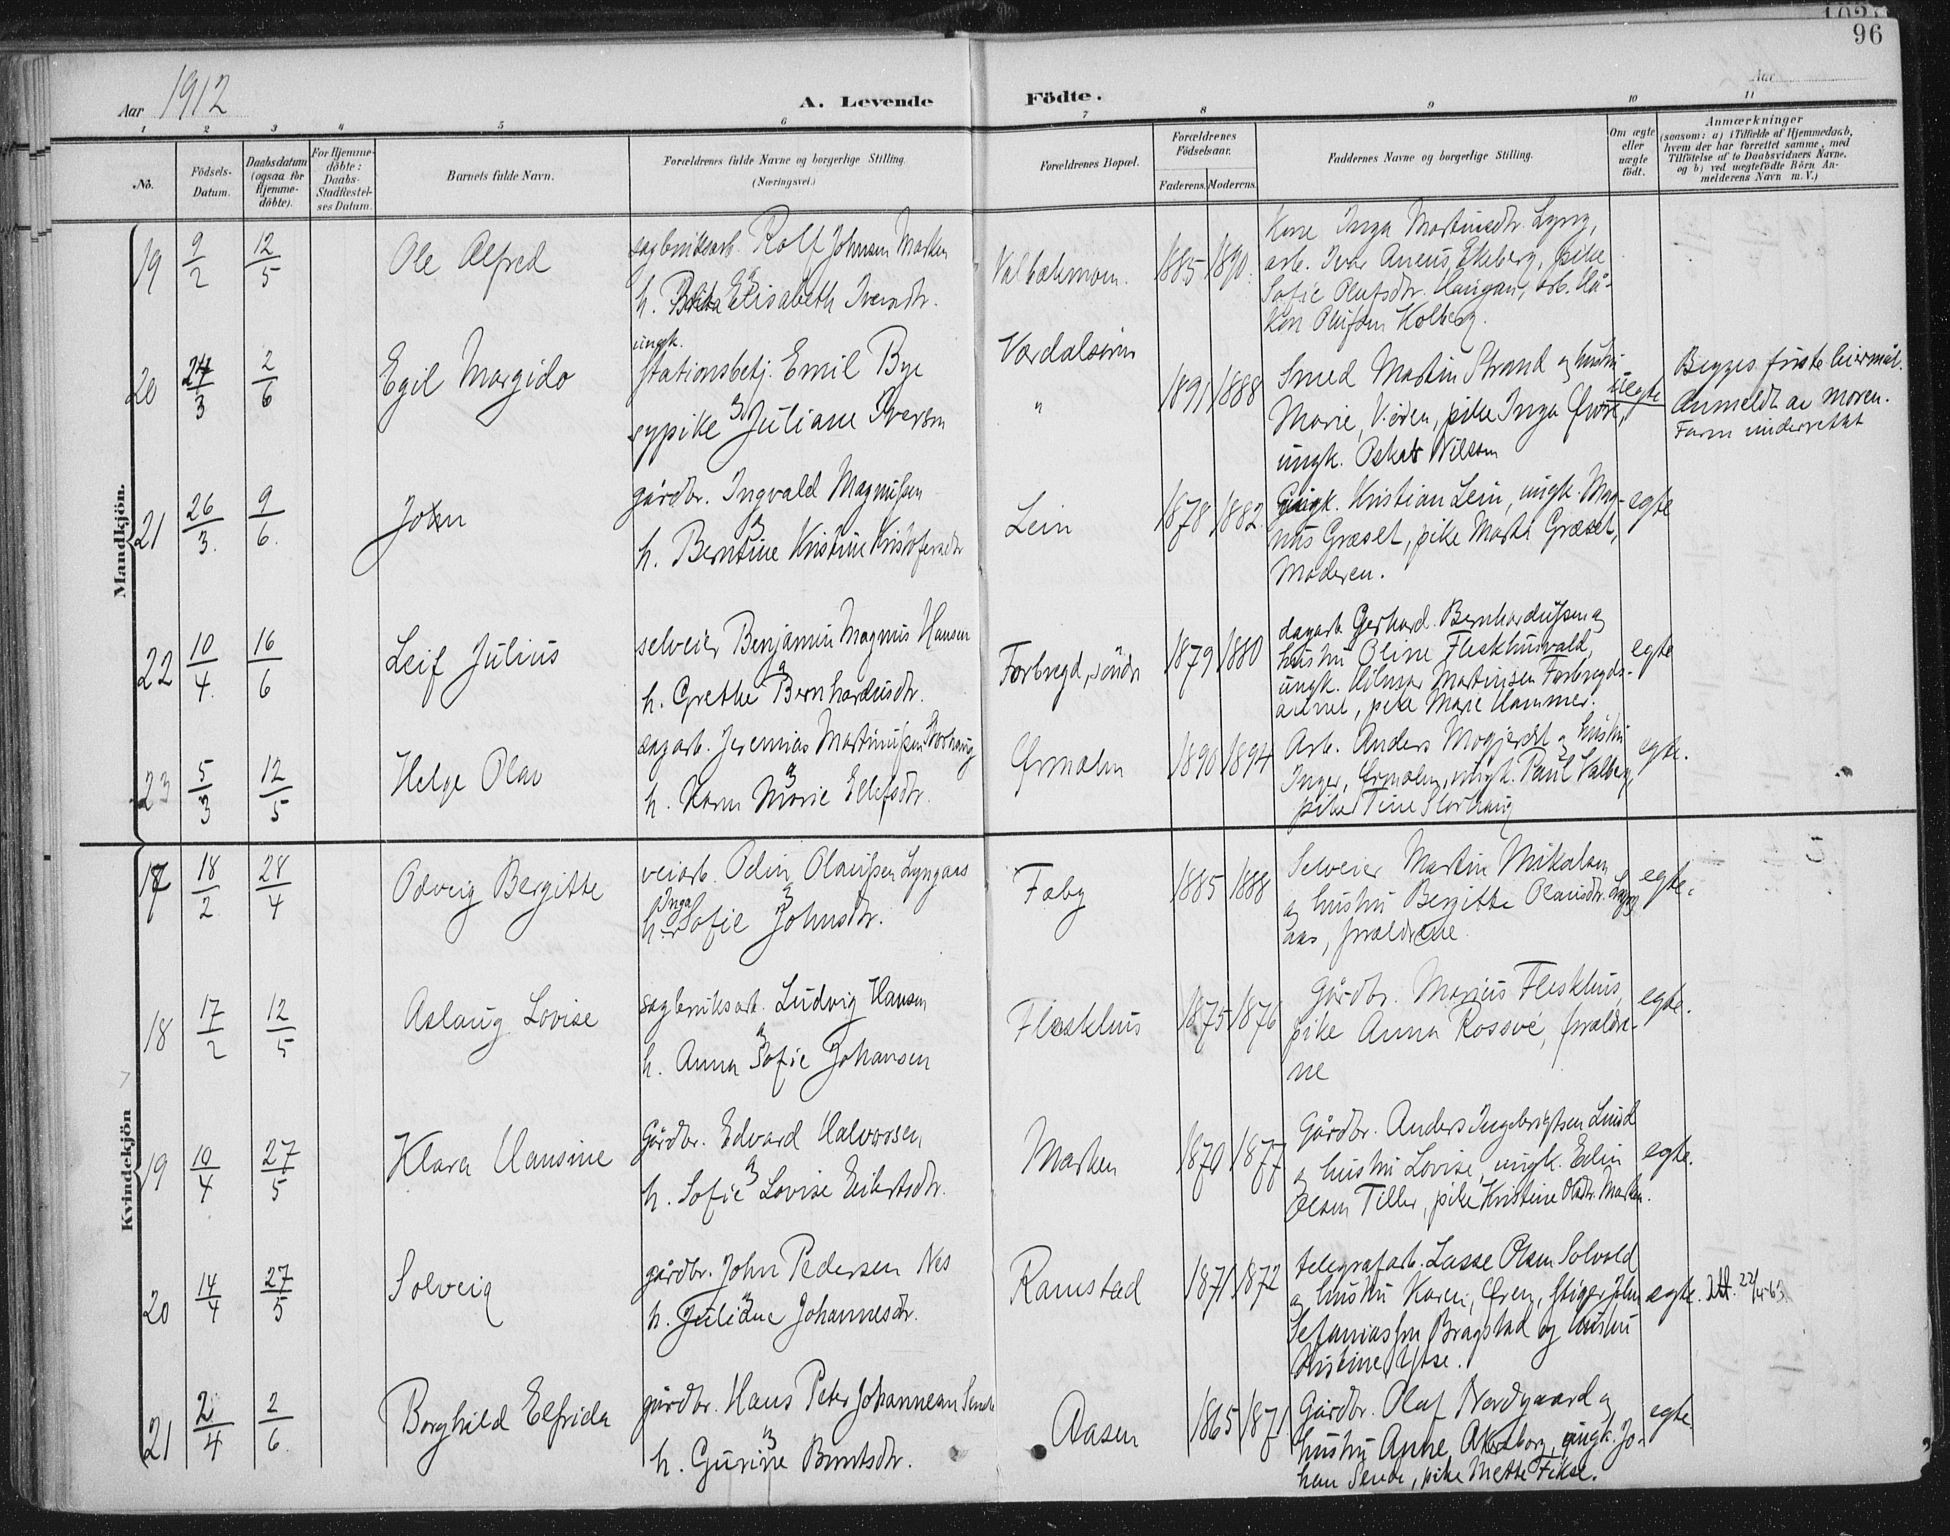 96
Aar 1912
A. Levende Födte.
Aar
1 2 3 4 5 6 7 8 9 10 11
No.
Födsels-Datum.
Daabsdatum (ogsaa for Hjemme-döbte).
For Hjemme-döbte: Daabs-Stadfestel-ses Datum.
Barnets fulde Navn.
Forældrenes fulde Navne og borgerlige Stilling. (Næringsvei.)
Forældrenes Bopæl.
Forældrenes Födselsaar.
Faderens. Moderens.
Faddernes Navne og borgerlige Stilling.
Om ægte eller uægte födt.
Anmærkninger
(saasom: a) i Tilfælde af Hjemmedaab,
hvem der har forrettet samme, med
Tilföielse af to Daabsvidners Navne,
og b) ved uægtefödte Börn An-
melderens Navn m. V.)
Mandkjön.
19 9/2 12/5 Ole Alfred
sagbruksarb. Rolf Johnsen Marken
h. Elisabeth Iversdtr.
1885 1890.
Kone Inga Martinsdtr. Lyng,
arb. Ivar Aneus Ekeberg, pike
Sofie Olafsdtr. Haugan, arb. Hå-
kon Olufsen Kolberg.
20 24/3 2/6 Egil Margido
ungk.
stationsbetj. Emil Bye
sypike Juliane Iversen
Værdalsören
"
1891 1888
Smed Martin Strand og hustru
Marie, pike Inga
ungk. Oskar Nilsen
uegte
Begges förste leiermål.
Anmeldt av moren.
Faren underrettet
21 26/3. 9/6. John
gårdbr. Ingvald Magnussen
h. Berntine Kristine Kristofersdtr
Lein
1878 1882.
ungk. Kristian Lein, ungk. Mag-
nus Græset, pike Marta Græset,
Moderen.
egte
22 10/4. 16/6 Leif Julius
selveier Benjamin Magnus Hansen
h. Grethe Bernhardusdtr.
Forbregd, söndr
1879 1880
dagarb. Gerhard Bernhardussen og
hustru Oline Fleskhusvald,
ungk. Hilmar Martinsen Forbregds-
, pike Marie Hammer.
egte
23 5/3 12/5 Helge Olav
dagarb. Jeremias Martinussen Storhaug
h. Karen Marie Ellefsdtr.
Ørmelen
1890 1894
Arb. Anders Mogjerdet og hustru
Inger, Ørmelen, ungk. Paul Valberg,
pike Tine Storhaug
egte.
Kvindekjön
17 18/2 28/4 Odveig Bergitte
veiarb. Odin Olaussen Lyngaas
h. Inga Sofie Johnsdtr.
Faby
1885 1888
Selveier Martin Mikalsen
og hustru Bergitte Olausdtr. Lyng-
aas, forældrene
egte.
18 17/2 12/5 Aslaug Lovise
sagbruksarb. Ludvig Hansen
h. Anna Sofie Johansen
Fleskhus
1875 1876
Gårdbr. Marius Fleskhus,
pike Anna Rossvo, forældre-
ne
egte.
19 10/4 27/5 Klara Hansine
Gårdbr. Edvard Halvorsen
h. Sofie Lovise Eilertsdtr.
Marken
1870 1877
Gårdbr. Anders Ingebrigtsen Lund
og hustru Lovise, ungk. Edin
Olsen Tiller, pike Kristine Olsdtr. Marken.
egte.
20 14/4 27/5 Solveig
gårdbr. John Pedersen Nes
h. Juliane Johannesdtr.
Ramstad
1871 1872
telegrafarb. Lasse Olsen Solvold
og hustru Karen, Ören, stiger John
Sefaniassen Bragstad og hustru
Kristine, Ytse.
egte.
22/4-63.
21 2/4 2/6. Borghild Elfrida
gårdbr. Hans Peter Johannesen Sende
h. Gurine Berntsdtr.
Aasen
1865 1871
Gårdbr. Olaf Nordgaard og
hustru Anne Akersborg, ungk. Jo-
han Sende, pike Mette Fikse.
egte.